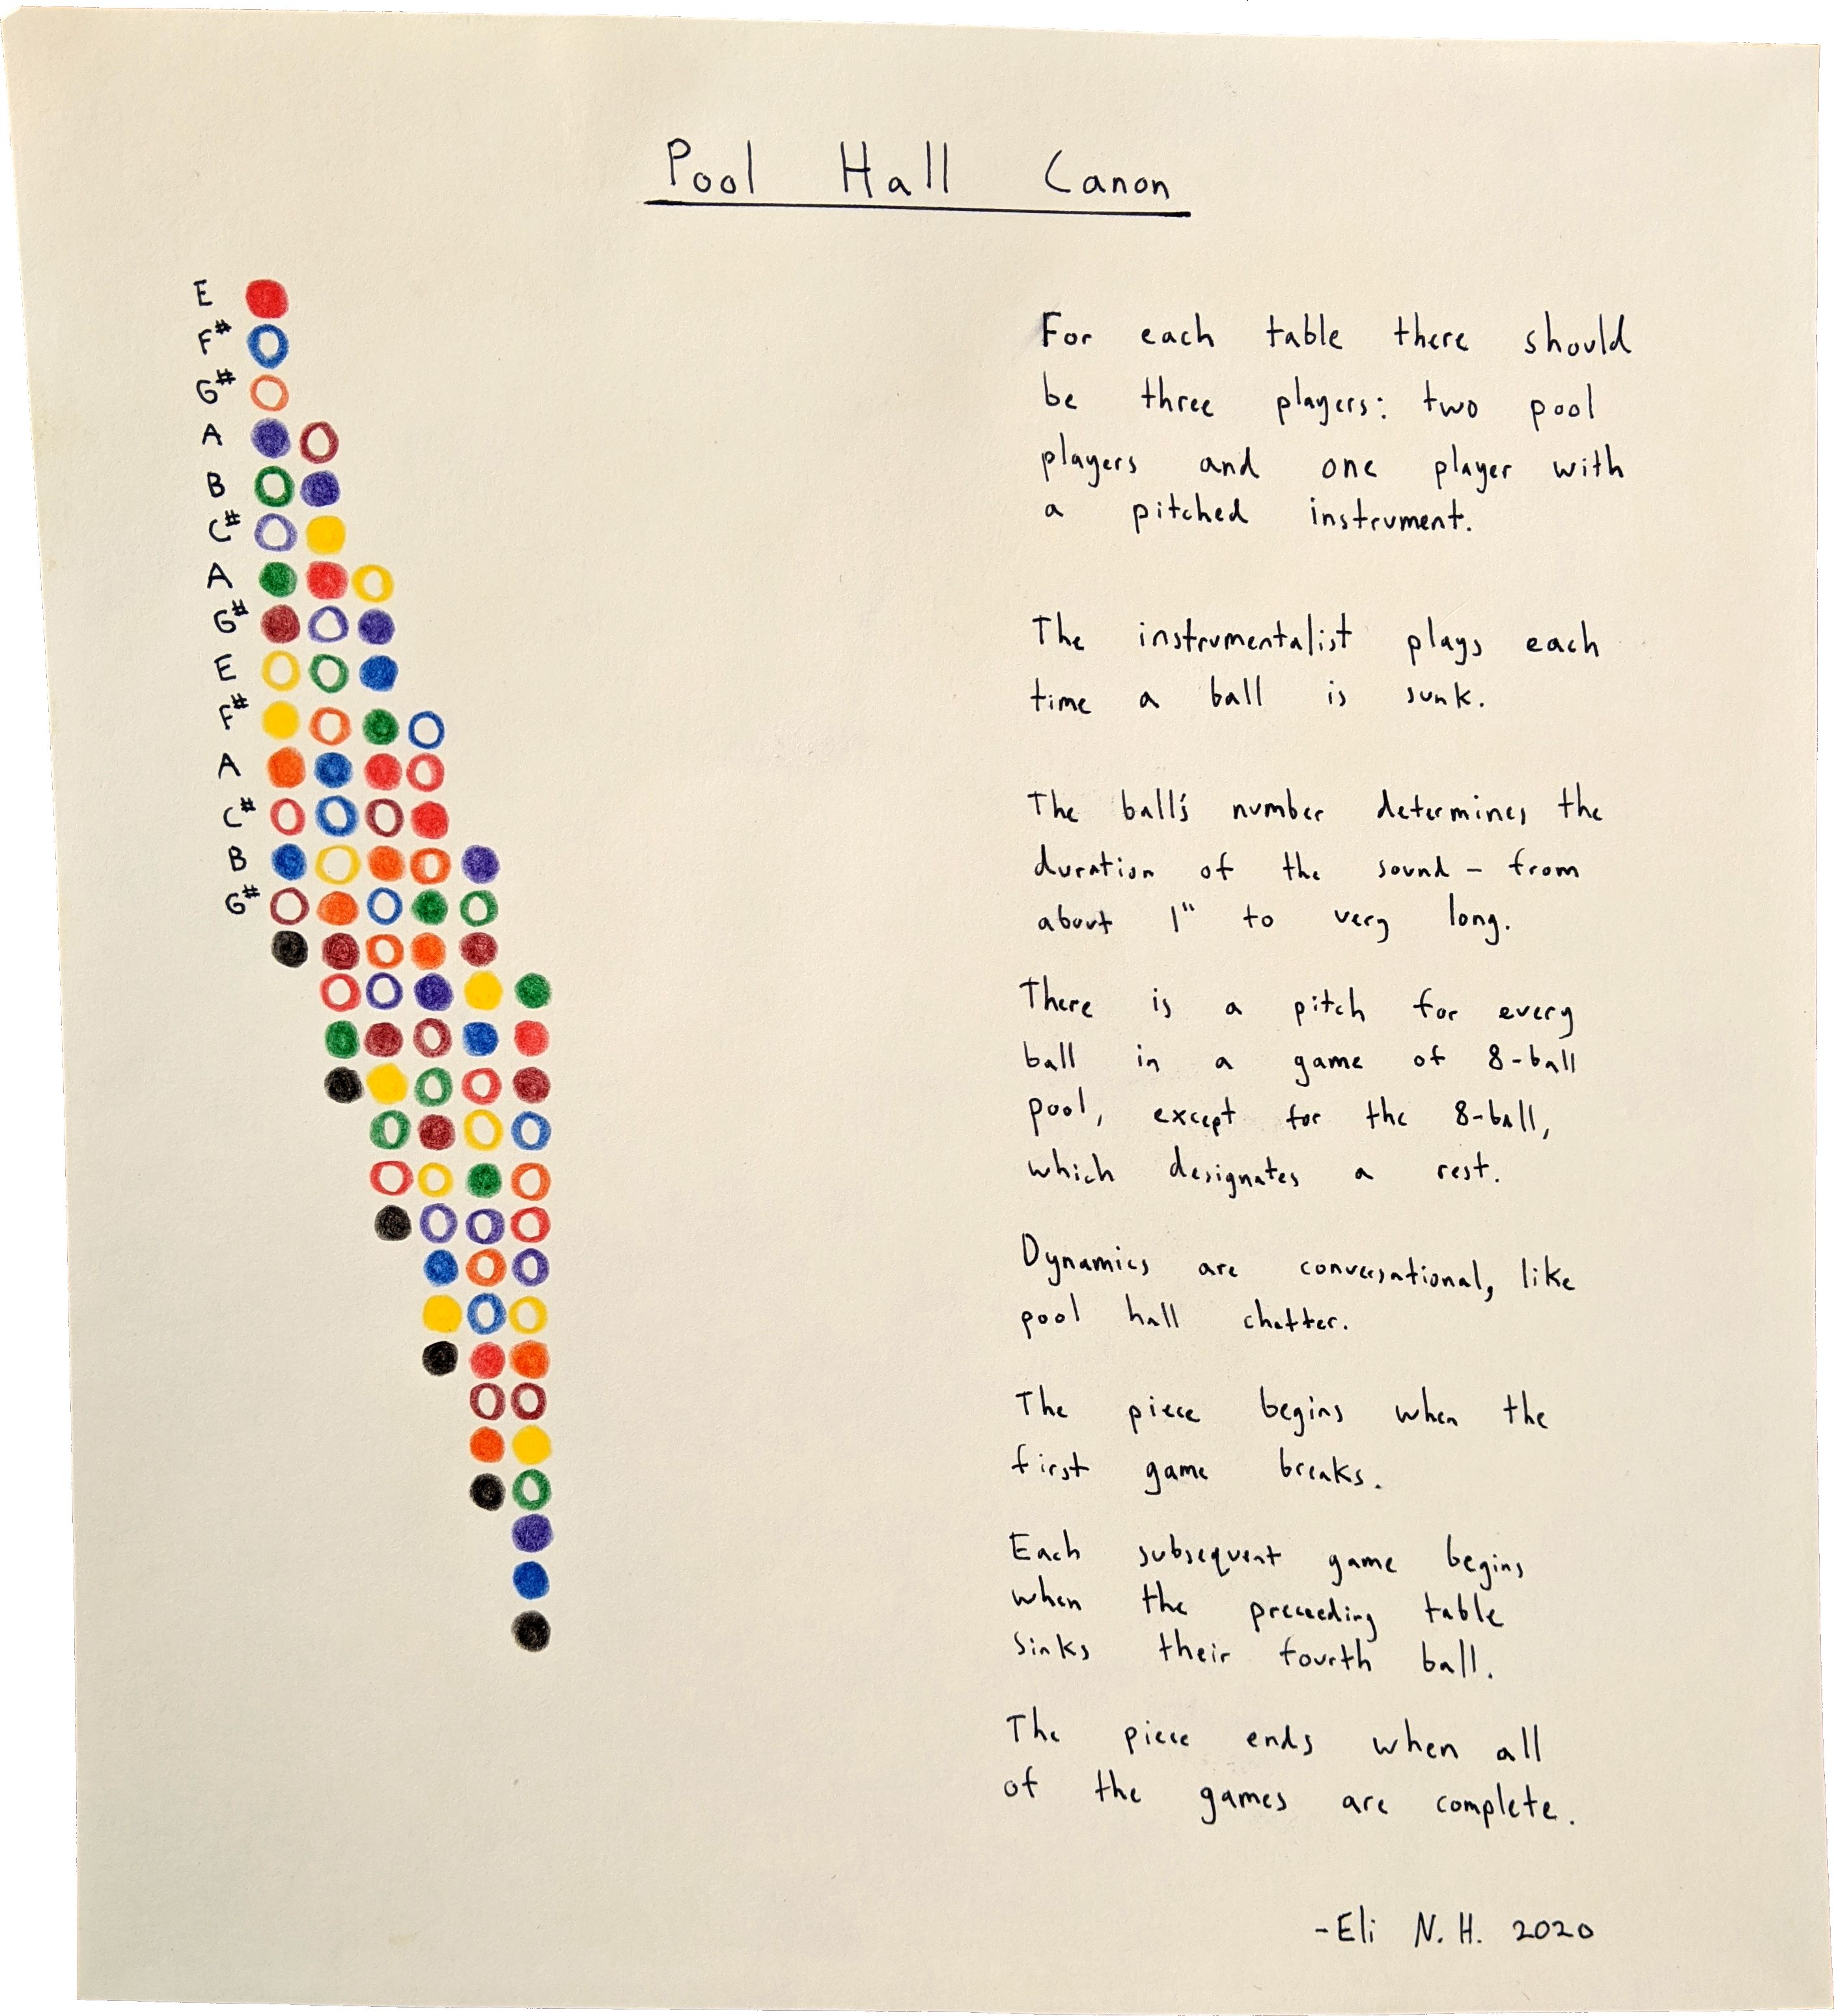 Pool Hall Canon
E
F#
G#
A
B
C#
A
G#
E
F#
A
C#
B
G#
For each table there should
be three players: two pool
players and one player with
a pitched instrument.
The instrumentalist plays each
time a ball is sunk.
The ball's number determines the
duration of the sound - from
about 1" to very long.
There is a pitch for every
ball in a game of 8-ball
pool, except for the 8-ball,
which designates a rest.
Dynamics are conversational, like
pool hall chatter.
The piece begins when the
first game breaks.
Each subsequent game begins
when the preceeding table
sinks their fourth ball.
The piece ends when all
of the games are complete.
-Eli N.H. 2020